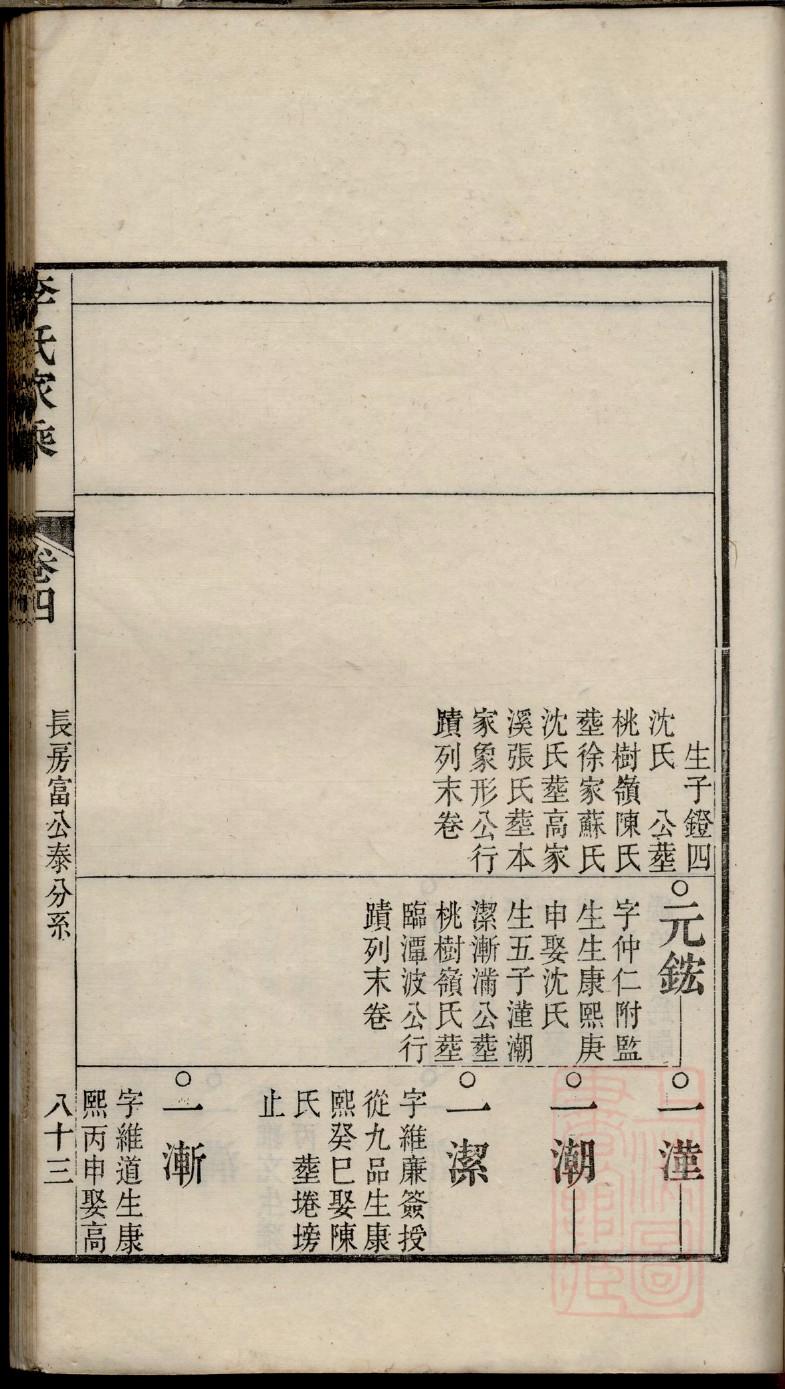 生子鐙四
沈氏　公塟
桃樹嶺陳氏
塟徐家蘇氏
沈氏塟高家
溪張氏塟本
家象形公行
蹟列末卷
○元鋐
字仲仁附監
生生康熙庚
申娶沈氏
生五子漌潮
潔漸滿公塟
桃樹嶺氏塟
臨潭波公行
蹟列末卷
○一漌
○一潮
○一潔
字維亷簽授
從九品生康
熙癸巳娶陳
氏　塟埢塝
止
○一漸
字維道生康
熙丙申娶高
李氏家乘
卷四
長房富公泰分系
八十三